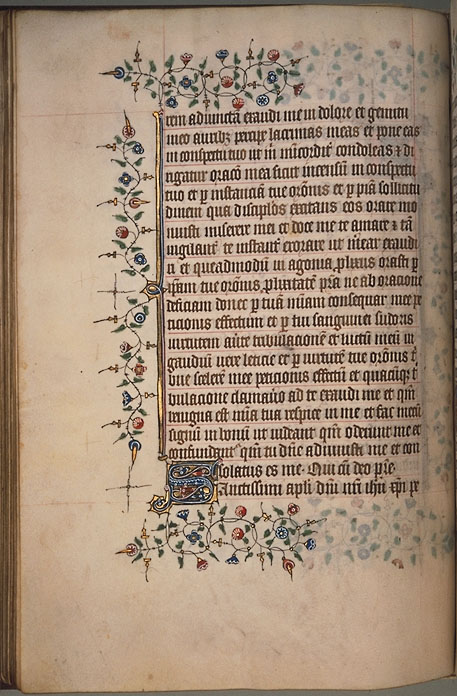 rem adiunctā exaudi me in dolore et gemitu
meo auribȝ percipe lacrimas meas et pone eas
in conspectu tuo ut in mīcordīe condoleas ⁊ di
rigatur oracō mea sicut incensū in conspectu
tuo et p instanciā tue orōnis et p piā sollicitu
dinem qua discipłos excitans eos orare mo
nuisti miserere mei et doce me te amare ⁊ tā
vigilant̄ te instant̄ exorare ut m̄ear exaudi
ri et queadmodū in agonia plixius orasti p
ip̄am tue orōnis plixitatē p̄ra ne ab oracione
deficiam donec p tuā m̄iam consequar mee pe
ticionis effectum et p tui sanguinei sudoris
virtutem aūte tribulacionē et luctū meū in
gaudiū vere leticie et p virtutē tue orōnis t̄
bue celerē mee peticionis effectū et quacūqȝ t̄
bulacione clamauo ad te exaudi me et qm̄
benigna est mīa tua respice in me et fac mecū
signū in bonū ut videant qm̄ oderunt me et
confundant᷑ qm̄ tu dn̄e adiuuisti me et con
solatus es me. Qui cū deo pr̄e.
Sanctissimi apłi dn̄i nr̄i ihū xp̄i pe